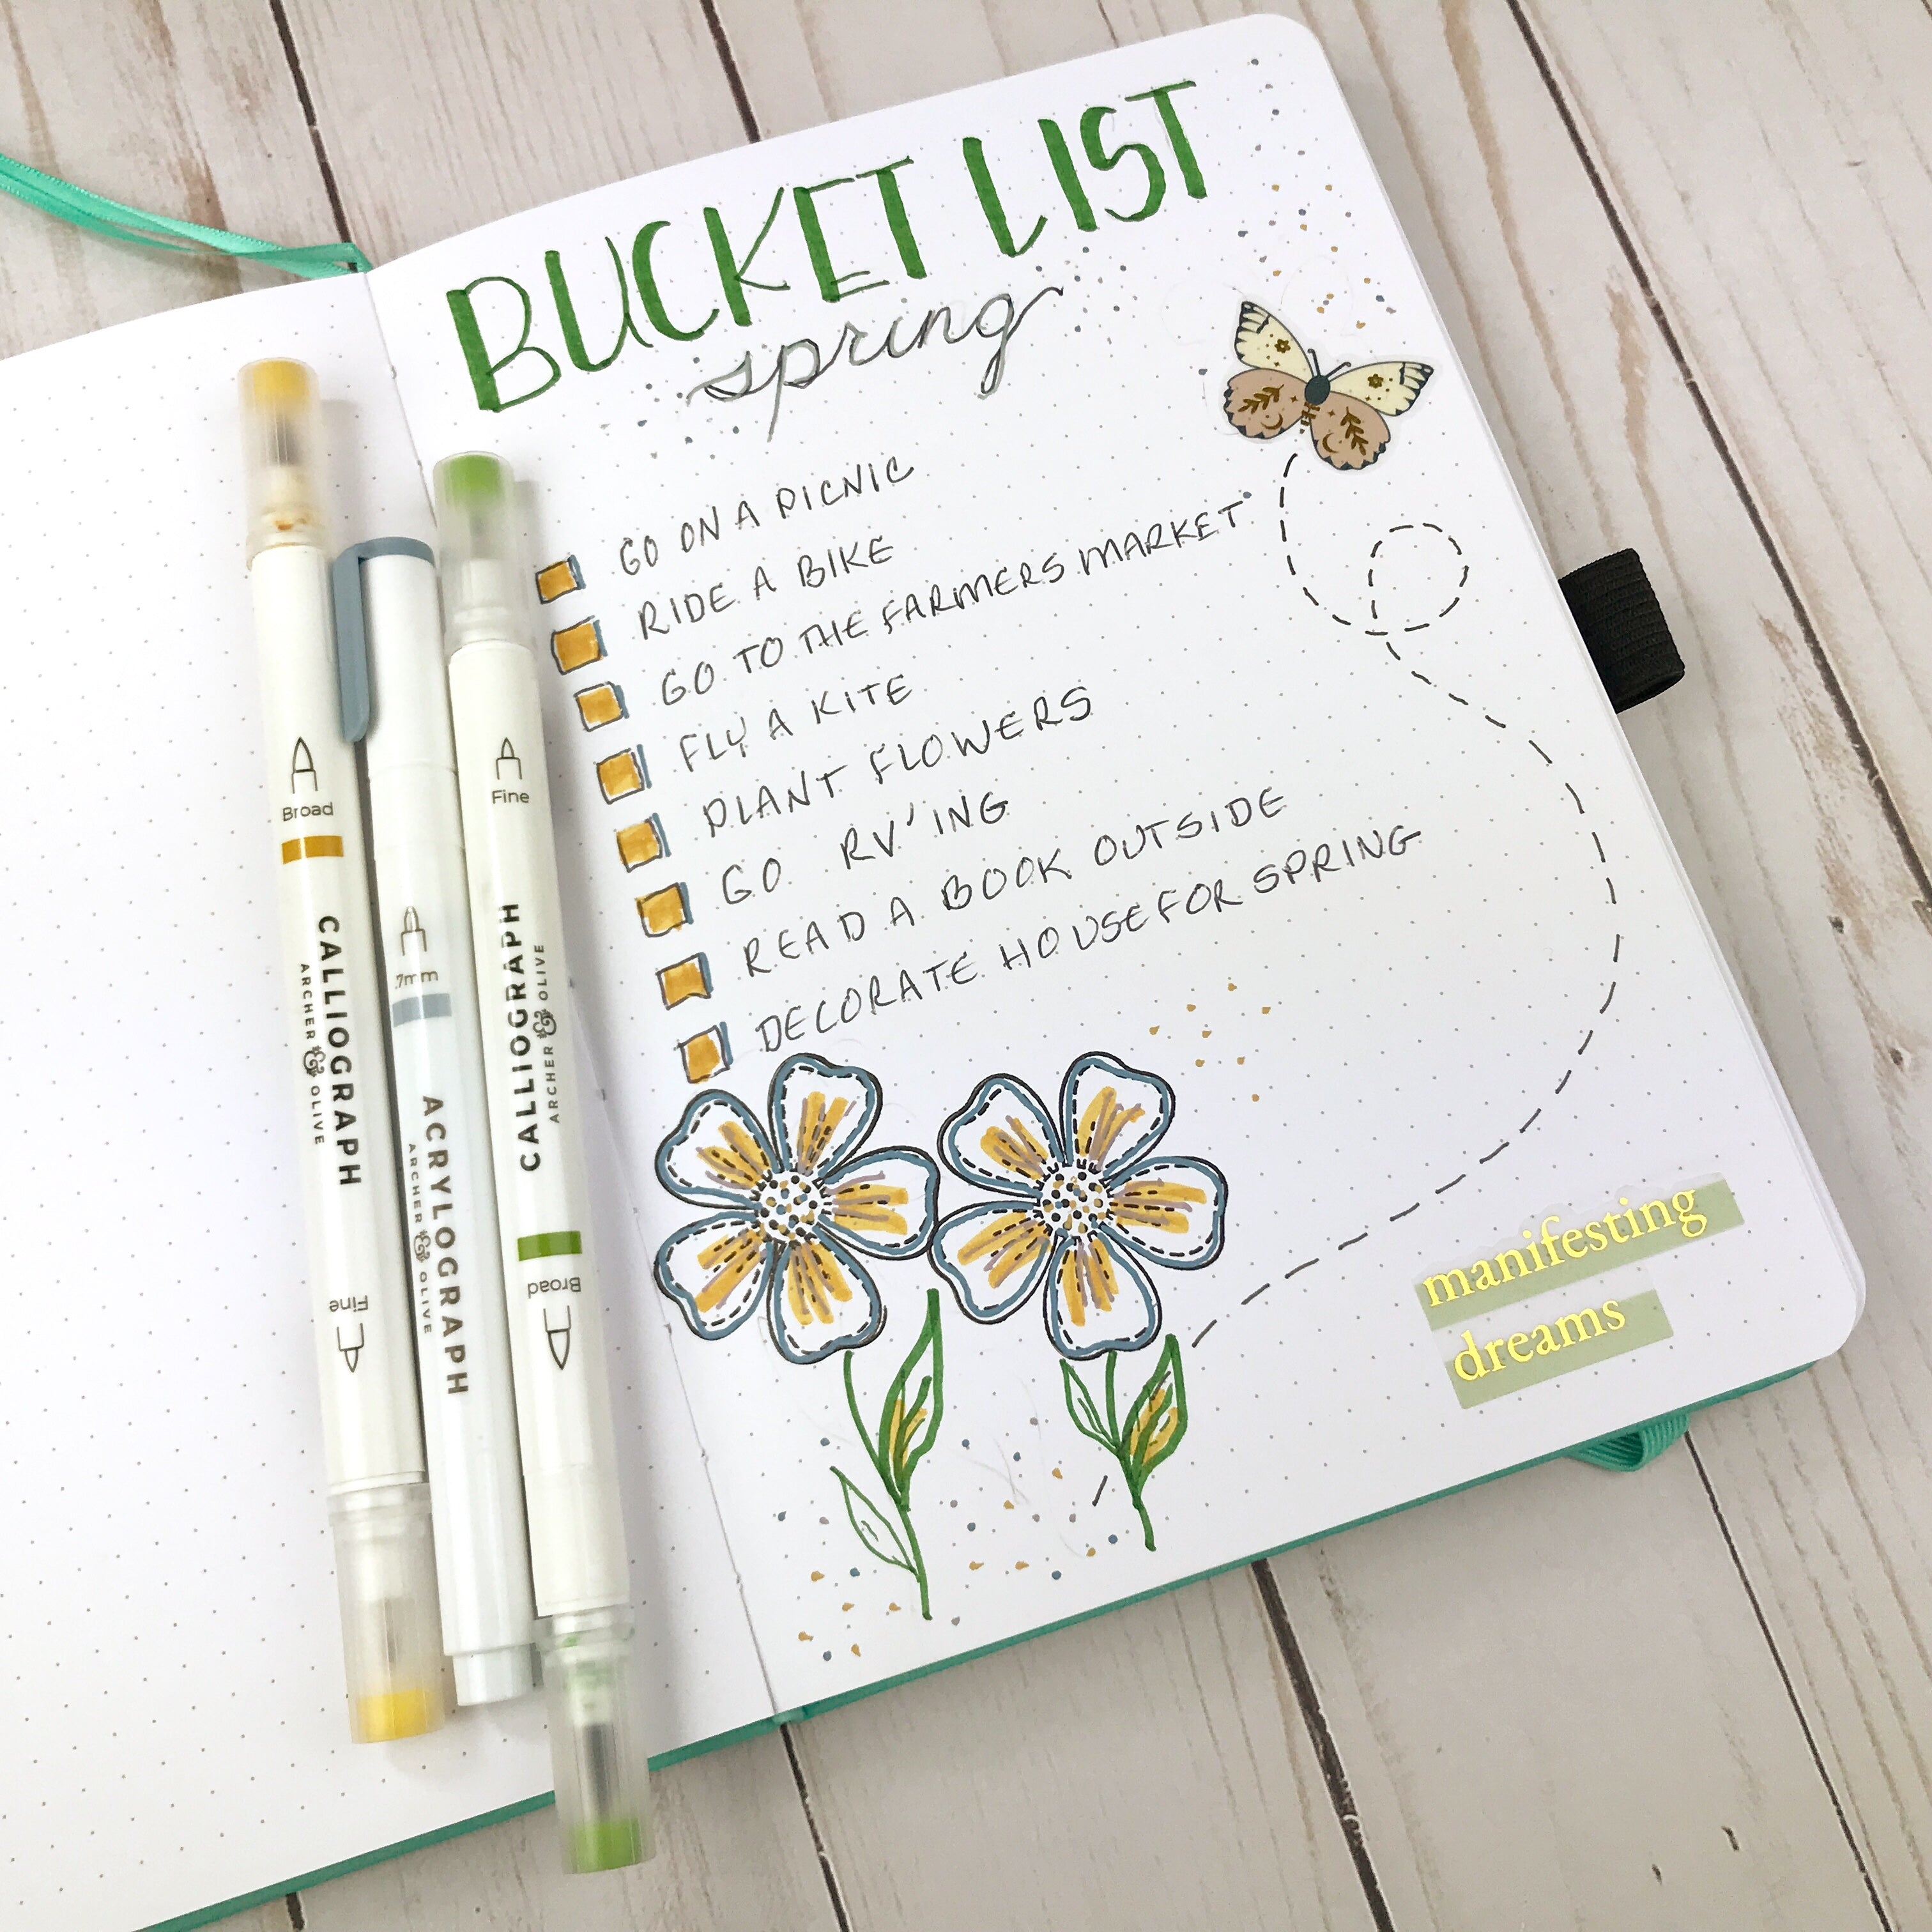 BUCKET LIST
spring
GO ON A PICNIC
RIDE A BIKE
GO TO THE FARMERS MARKET
FLY A KITE
PLANT FLOWERS
GO RV'ING
READ A BOOK OUTSIDE
DECORATE HOUSE FOR SPRING
manifesting
dreams
Broad
CALLIOGRAPH
ARCHER & OLIVE
Fine
.7mm
ACRYLOGRAPH
ARCHER & OLIVE
Fine
CALLIOGRAPH
ARCHER & OLIVE
Broad